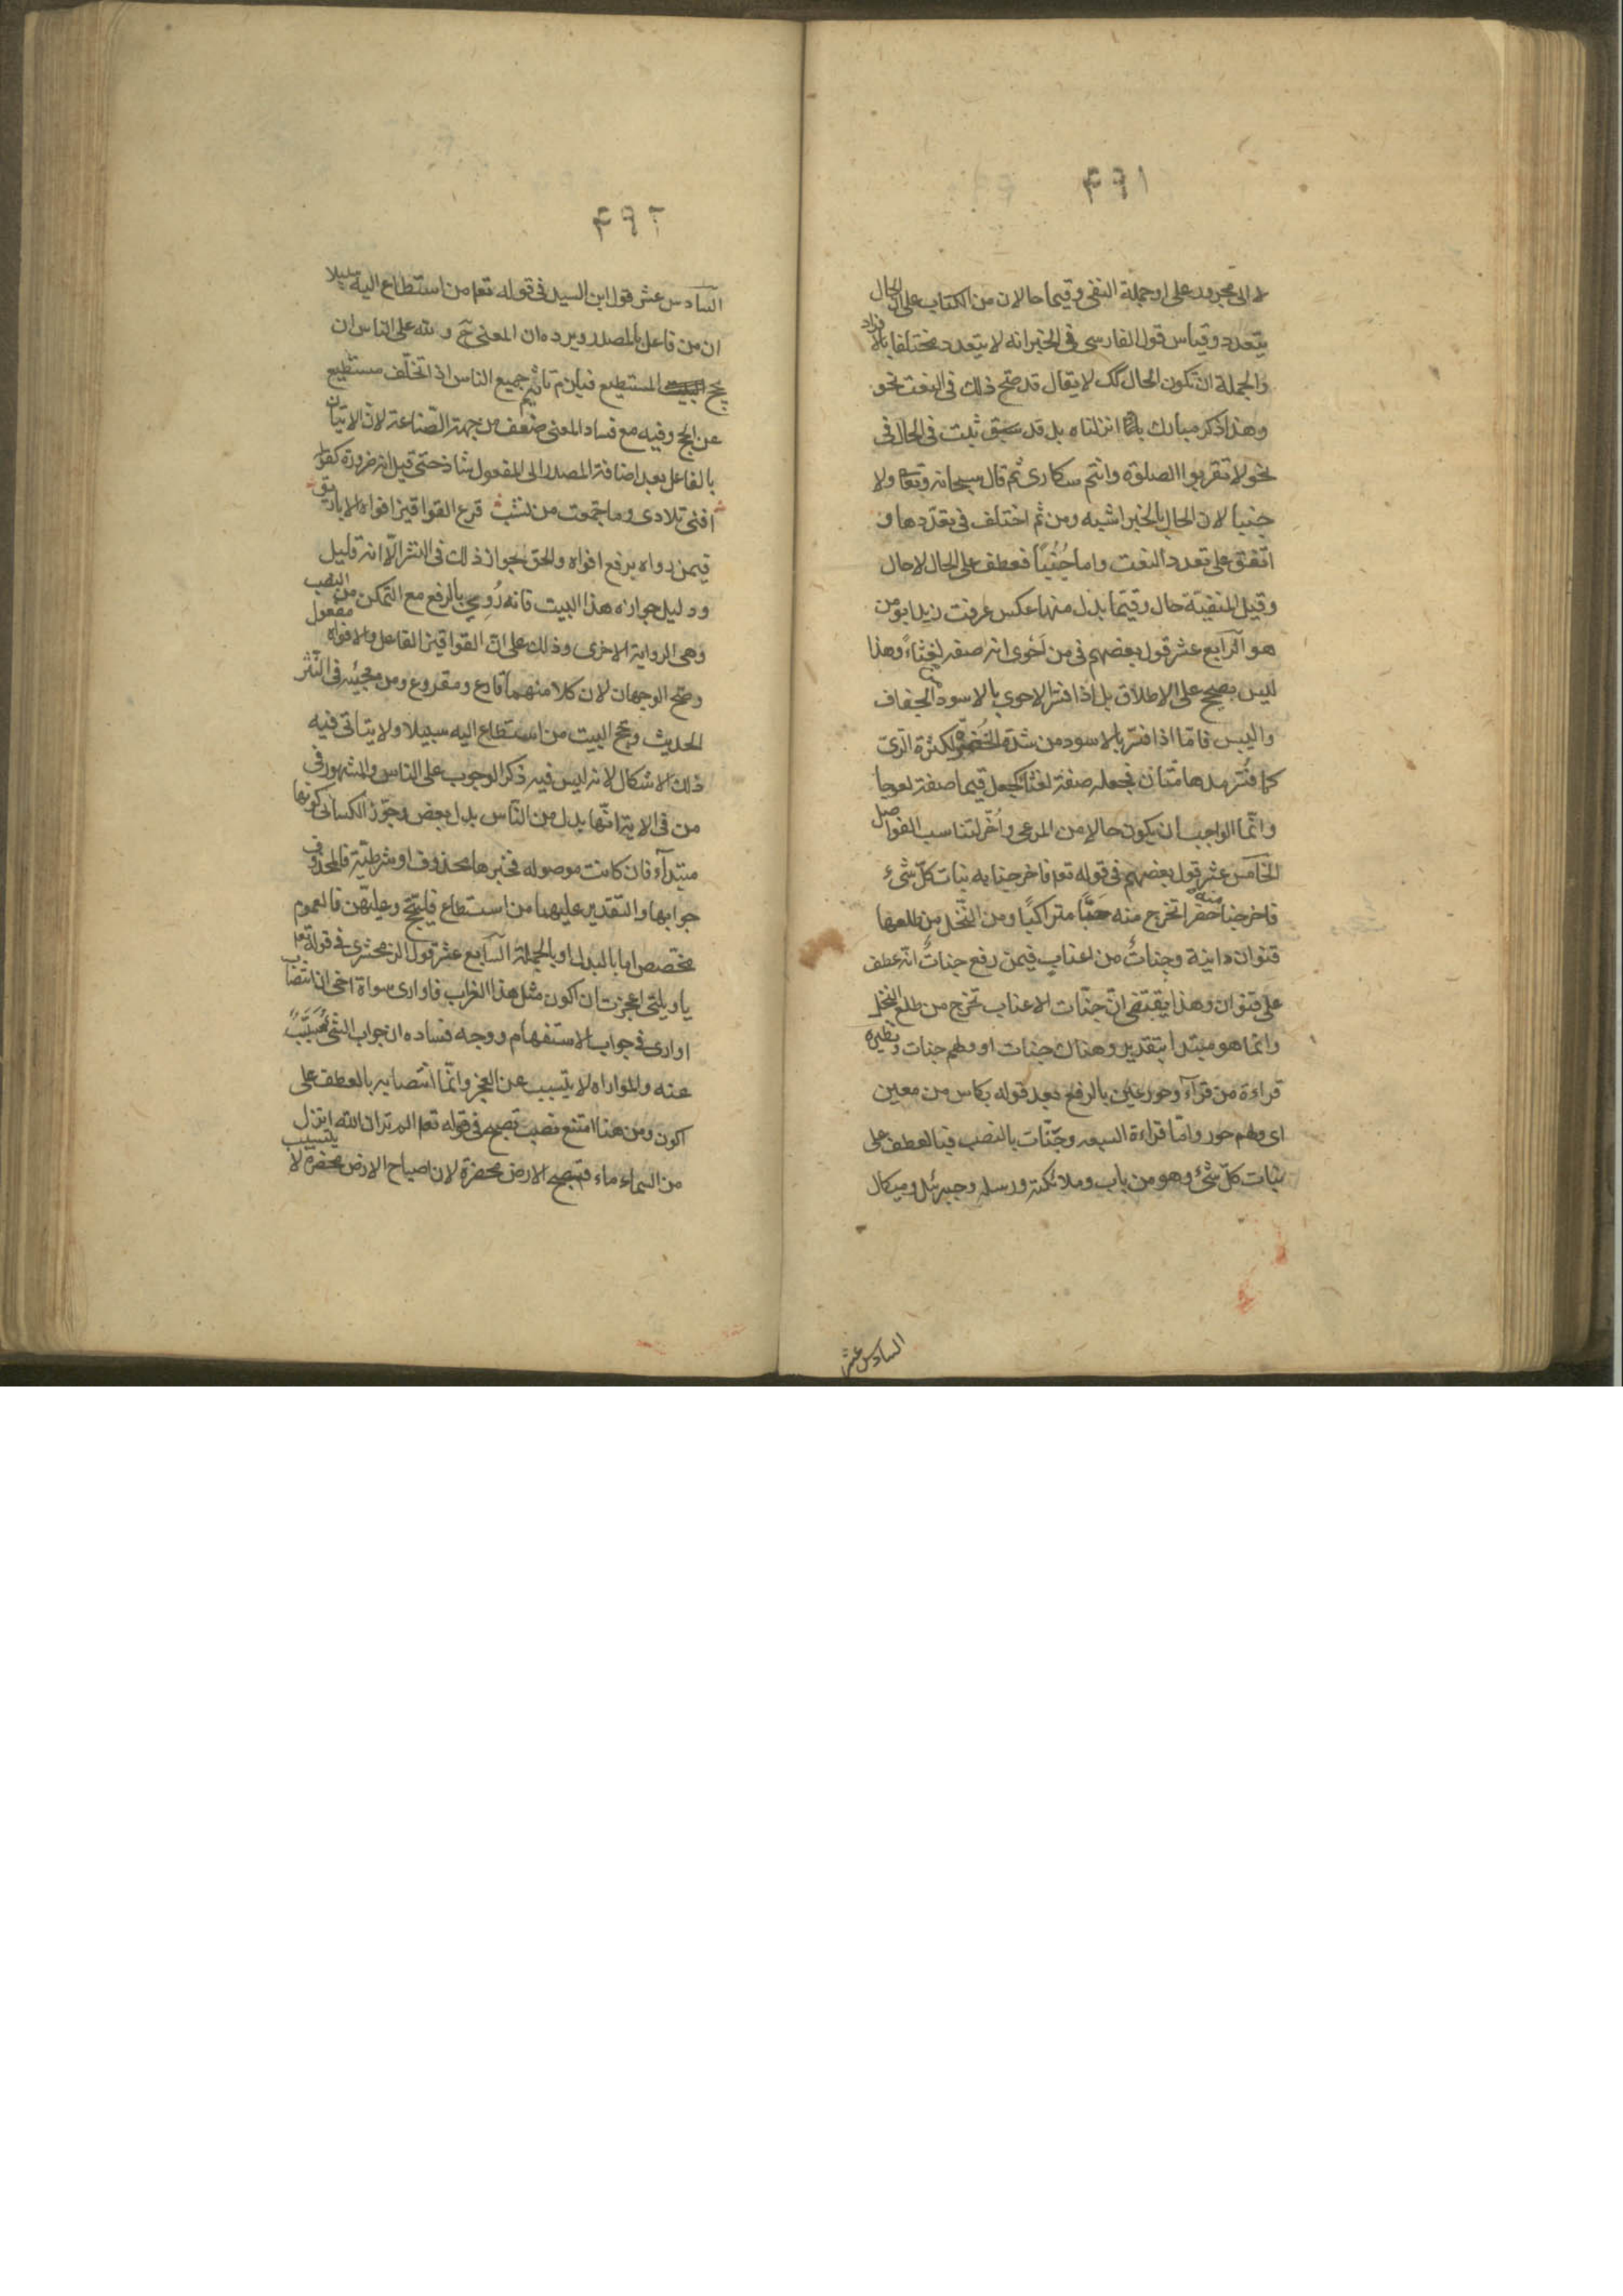 ۴۹۱
لا الى مجرور على او جملة النفى وقيما حالان من الكتاب على ان الحال
يتعدد وقياس قول الفارسى فى الخبر انه لا يتعدد مختلفا بالافراد
والجملة ان تكون الحال كك لا يقال قد صح ذلك فى النعت نحو
وهذا ذكر مبارك انزلناه بل قد ثبت فى الحال فى
نحو لا تقربوا الصلوة وانتم سكارى ثم قال سبحانه وتعا ولا
جنبا لان الحال بالخبر اشبه ومن ثم اختلف فى تعددها و
اتفق على تعدد النعت واما جُنُبًا فعطف على الحال لا حال
وقيل المنفيّة حال وقيّما بدل منها عكس عرفت زيدا بو من
هو الرابع عشر قول بعضهم فى من اَحْوى انه صفه لغثاءً وهذا
ليس بصحيح على الاطلاق بل اذا فسّر الاحوى بالاسود الجفاف
واليبس فامّا اذا فسّر بالاسود من شدة الخُضرة لكثرة الرّىّ
كما فُسّر مدهامّتان فجعله صفة لغثا كجعل قيما صفة لعوجا
وانّما الواجب ان يكون حالا من المرعى واُخّر لتناسب الفواصل
الخامس عشر قول بعضهم فى قوله تعا فاخرجنا به نبات كلّ شىء
فاخرجنا منه خضرا نخرج منه حَبًّا متراكبًا ومن النّخل من طلعها
قنوان دانية وجناتٌ من اعنابٍ فيمن رفع جناتٌ انّه عطف
على قنوان وهذا يقتضى انّ جنّات الاعناب تخرج من طلع النخل
وانما هو مبتدا بتقدير وهناك جنات او ولهم جنات ونظيره
قراءة من قرآ وحور عين بالرفع بعد قوله بكاس من معين
اى ولهم حور وامّا قراءة السبعه وجنّات بالنصب فبالعطف على
نبات كلّ شىء وهو من باب وملائكته ورسله وجبرئل وميكال
السادس عشر
۴۹۲
السّادس عشر قول ابن السيد فى قوله تعا من استطاع اليه سبيلا
ان من فاعل بالمصدر ويرده ان المعنى ح ولله على الناس ان
يحج المستطيع فيلزم تاثيم جميع الناس اذا تخلّف مستطيع
عن الحج وفيه مع فساد المعنى ضعف من جهة الصّناعة لانّ الاتيان
بالفاعل بعد اضافة المصدر الى المفعول شاذ حتى قيل انه ضرورة كقوله
افنى تلادى وما جمعت من نشب قرع القواقيز افواه الاباريق
فيمن رواه برفع افواه والحق بجواز ذلك فى النثر الّا انه قليل
ودليل جوازه هذا البيت فانه رُوِي بالرفع مع التمكن من النصب
وهى الرواية الاخرى وذلك على انّ القواقيز الفاعل والافواه مفعول
وصّح الوجهان لان كلا منهما قارع ومقروع ومن مجيئه فى النّثر
الحديث وحج البيت من استطاع اليه سبيلا ولا يتاتى فيه
ذلك الاشكال لانه ليس فيه ذكر الوجوب على الناس والمشهور فى
من فى الاية انّها بدل من النّاس بدل بعض وجوّز الكسائى كونها
مبتدآء فان كانت موصوله فخبرها محذوف او شرطيّة فالمحذوف
جوابها والتقدير عليهما من استطاع فليحجّ وعليهن فالعموم
مخصص اما بالبدل او بالجملة السّابع عشر قول الزمخشرى فى قوله تعا
يا ويلتى اعجزت ان اكون مثل هذا الغراب فاوارى سواة اخى ان انتصاب
اوارى فى جواب الاستفهام ووجه فساده ان جواب الشئ مُسَبَّبٌ
عنه والمواراه لا يتسبب عن العجز وانّما انتصابه بالعطف على
اكون ومن هنا امتنع نصب تصبح فى قوله تعا الم تر ان الله انزل
من السماء ماء فتصبح الارض مخضرة لان اصباح الارض مخضرة لا يتسبب